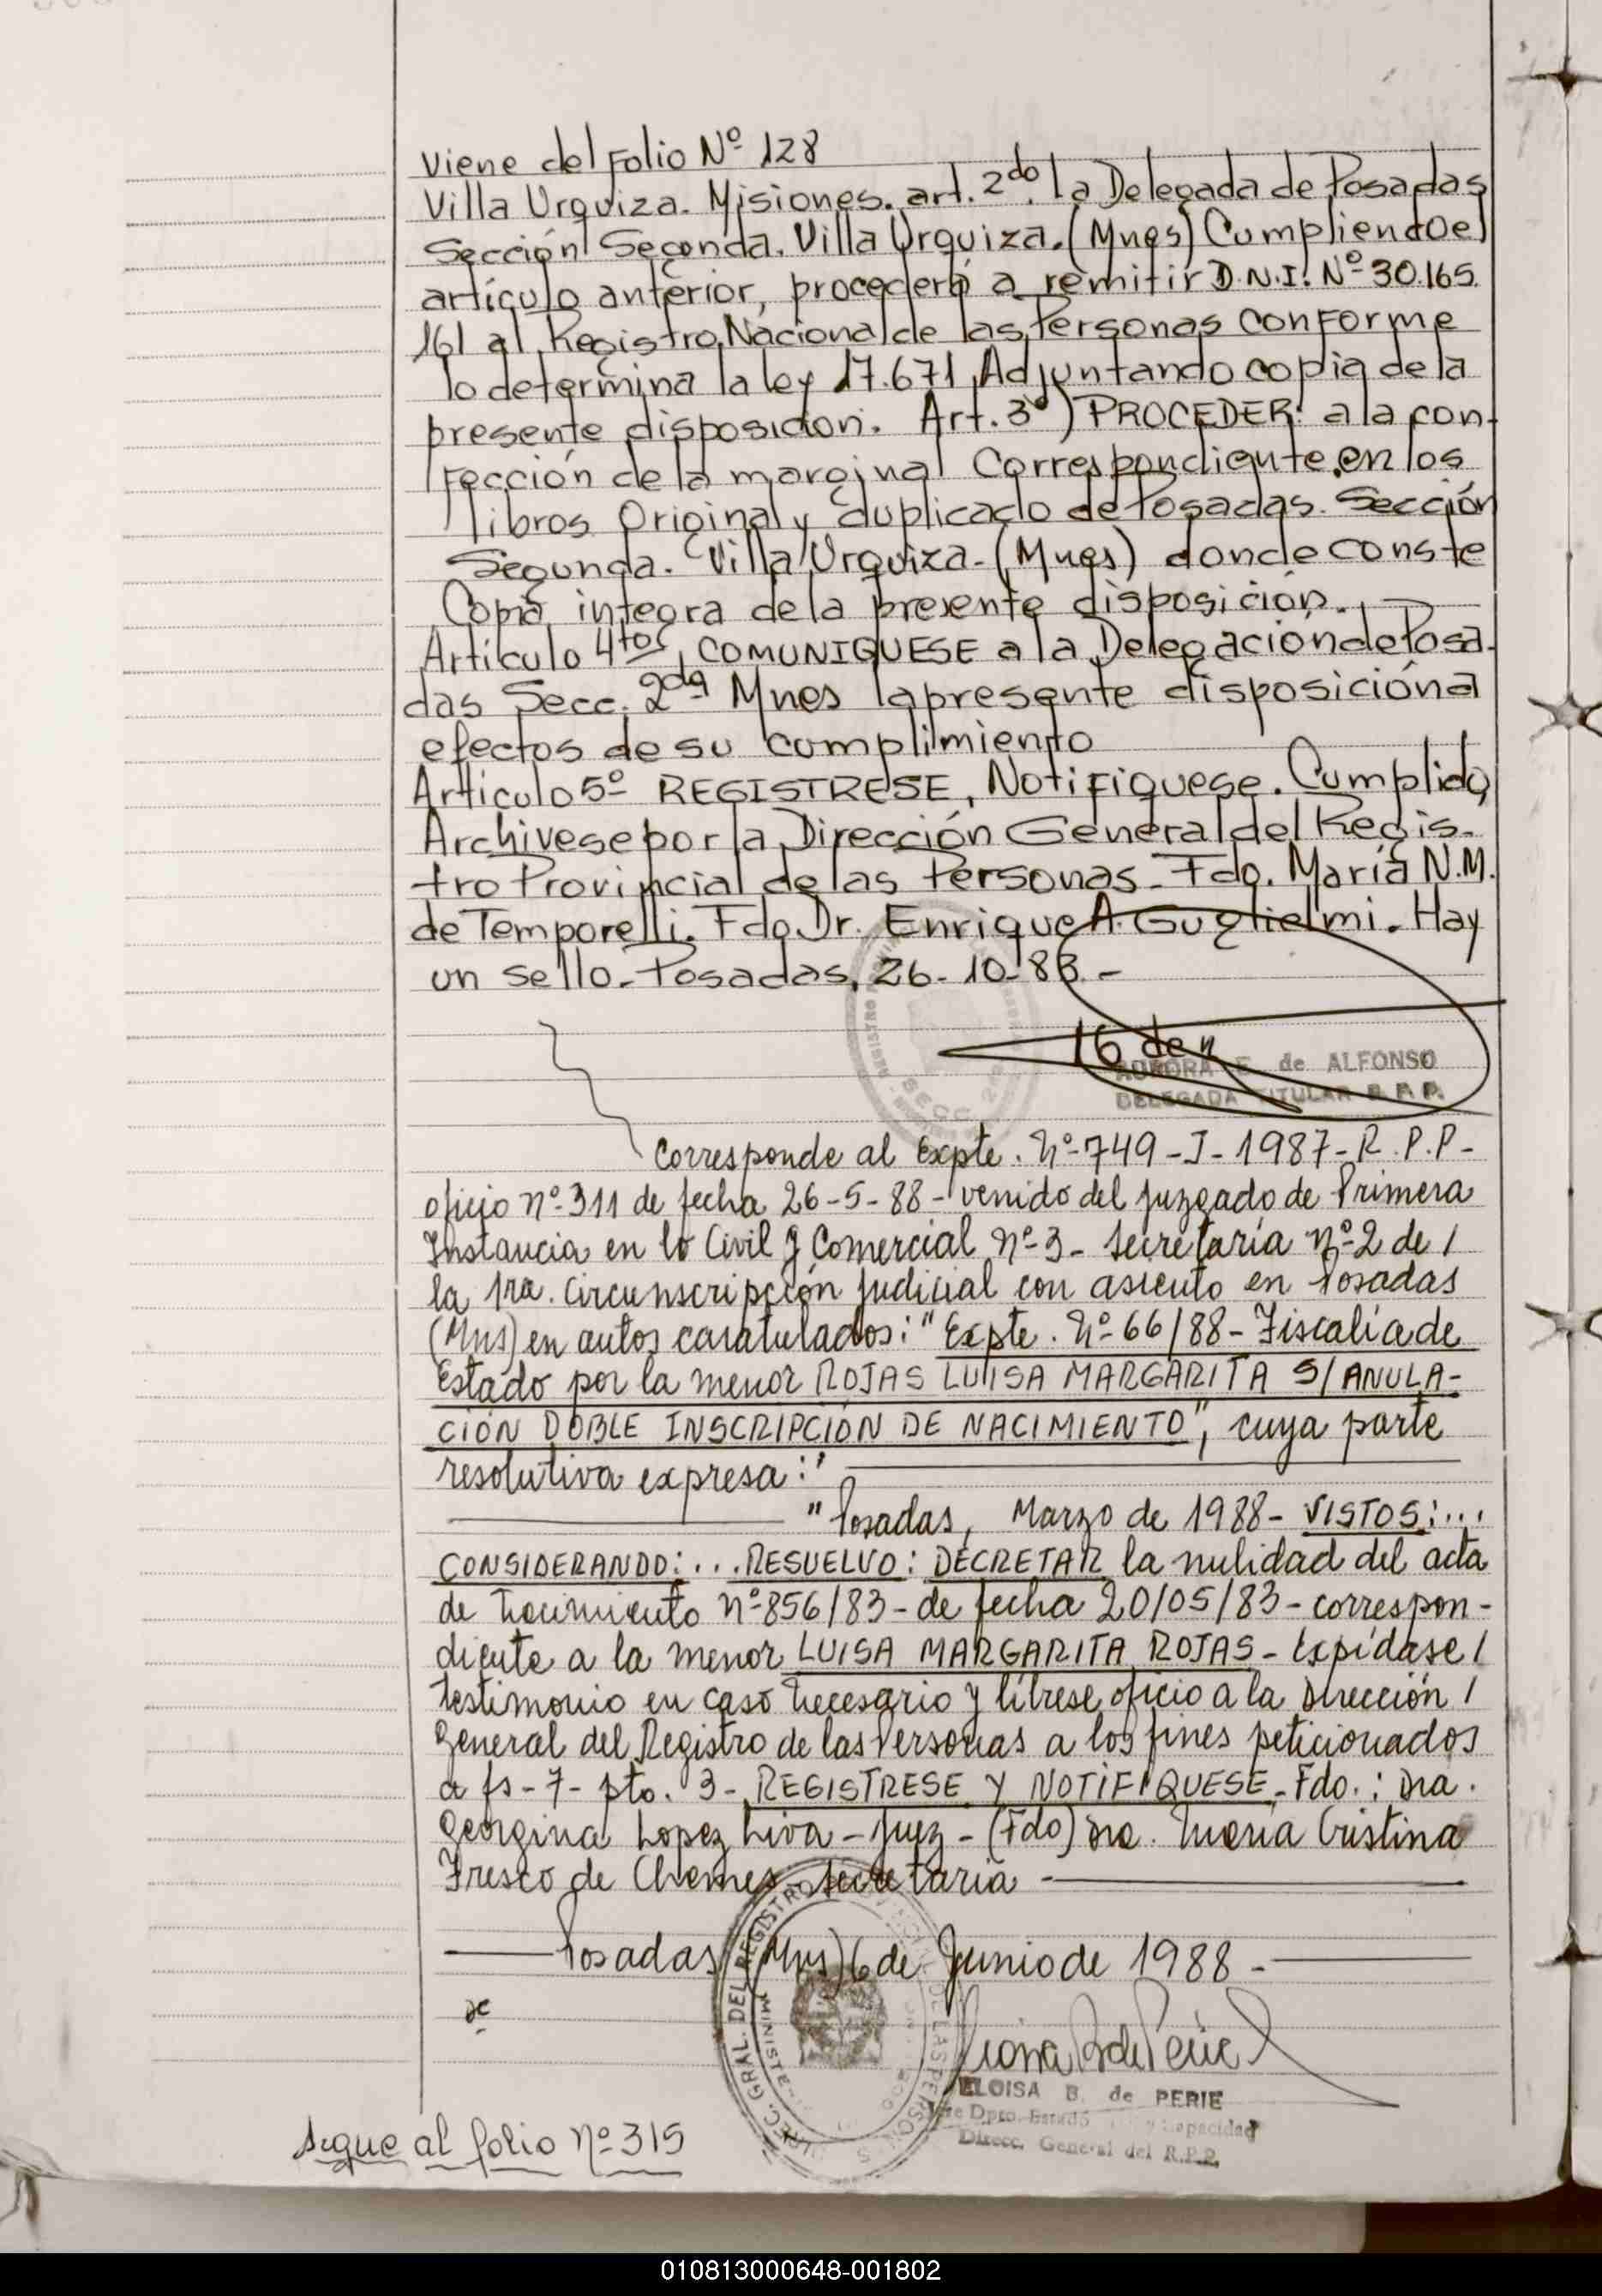 Viene del Folio Nº 128
Villa Urquiza. Misiones. art. 2do. la Delegada de Posadas
Sección Segonda. Villa Urquiza. (Mnes) Cumpliendo el
artículo anterior, procederá a remitir D.N.I. Nº 30.165.
161 al Registro Nacional de las Personas conforme
lo determina la ley 17.671 Adjuntando copia de la
presente disposicion. Art. 3º) PROCEDER: a la con-
fección de la marginal Correspondiente en los
libros Original y duplicado de Posadas. Sección
Segunda. Villa Urquiza - (Mnes) donde conste
Copia integra de la presente disposición. —
Artículo 4to, COMUNIQUESE a la Delegación de Posa-
das Secc. 2da Mnes la presente disposición a
efectos de su cumplimiento
Artículo 5º REGISTRESE, Notifiquese. Cumplido,
Archivese por la Dirección General del Regis-
tro Provincial de las Personas - Fdo. María N.M.
de Temporelli. Fdo Dr. Enrique A. Guglielmi. Hay
un sello - Posadas, 26-10-83. -
AURORA E de ALFONSO
DELEGADA TITULAR R. P. P.
Corresponde al Expte. Nº 749 - J - 1987 - R.P.P -
oficio nº 311 de fecha 26-5-88 - venido del juzgado de Primera
Instancia en lo Civil y Comercial nº 3 - Secretaría nº 2 de /
la 1ra. Circunscripción judicial con asiento en Posadas
(Mns) en autos caratulados: "Expte. Nº 66/88 - Fiscalía de
Estado por la menor ROJAS LUISA MARGARITA S/ ANULA-
CIÓN DOBLE INSCRIPCIÓN DE NACIMIENTO", cuya parte
resolutiva expresa:"
"Posadas, Marzo de 1988 - VISTOS:...
CONSIDERANDO:... RESUELVO: DECRETAR la nulidad del acta
de nacimiento nº 856/83 - de fecha 20/05/83 - correspon-
diente a la menor LUISA MARGARITA ROJAS - Expídase /
testimonio en caso necesario y líbrese oficio a la Dirección /
General del Registro de las Personas a los fines peticionados
a fs - 7 - pto. 3 - REGISTRESE Y NOTIFIQUESE - Fdo.: Dra.
Georgina Lopez Liva - juez - (Fdo) Dra. María Cristina
Fresco de Chemes - secretaria -
Posadas (Mns) 6 de Junio de 1988 -
ELOISA B. de PERIE
Jefe Dpto. Estado y Capacidad
Direcc. General del R.P.P.
sigue al folio nº 315
010813000648-001802